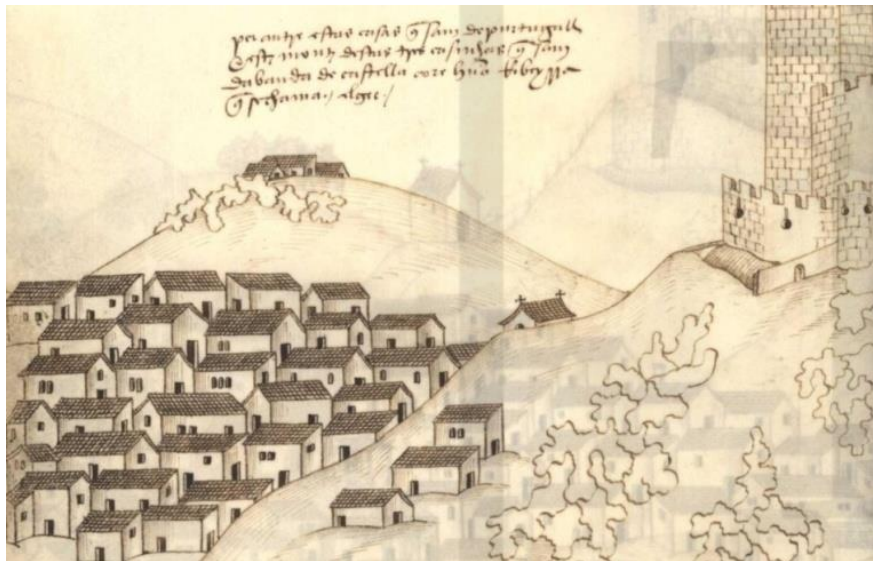 per antre estas casas q̃ sam de purtugall
E este monte destas tres casinhas q̃ sam
da banda de castella core hũa Ribeyra
q̃ se chama · elgee ·/